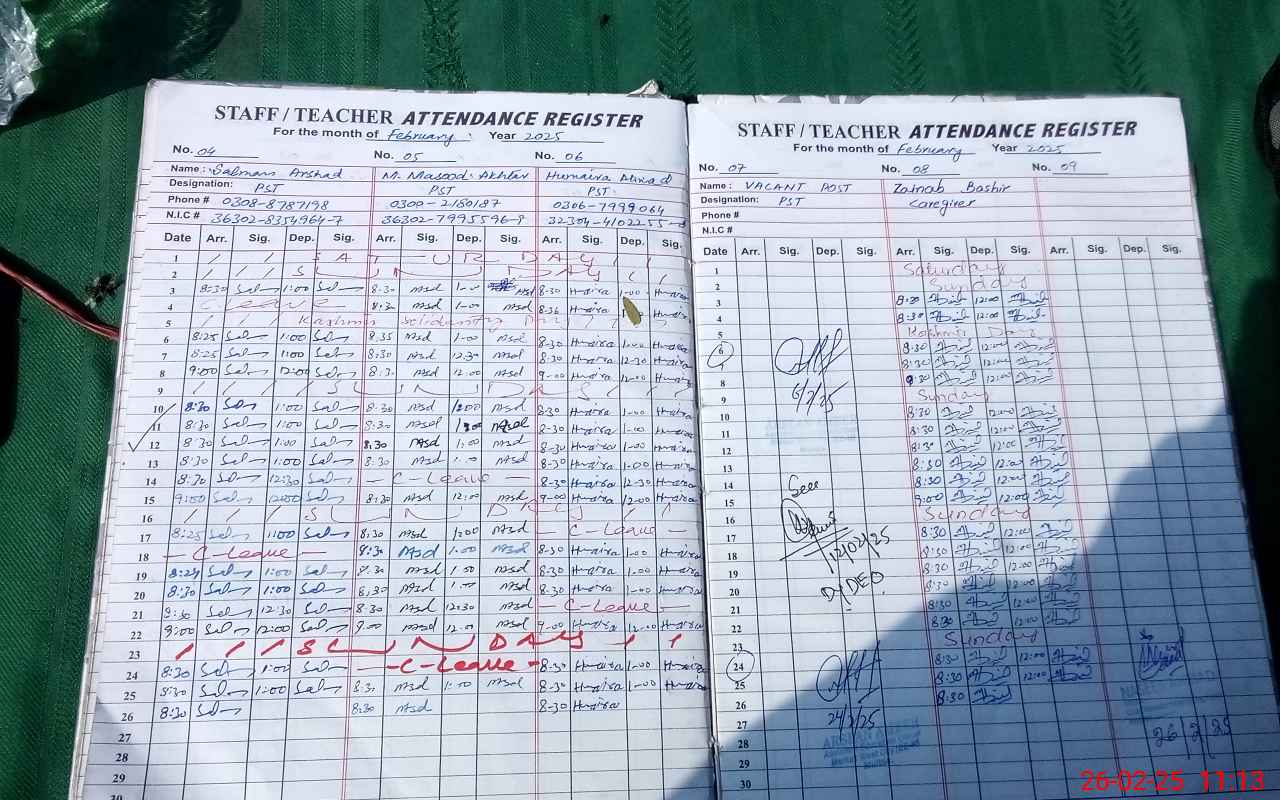 STAFF / TEACHER ATTENDANCE REGISTER
For the month of February. Year 2025
No. 04 No. 05 No. 06
Name: Salman Arshad M. Masood Akhtar Humaira
Designation: PST PST PST
Phone # 0308-8787198 0300-2180187 0306-7999064
N.I.C # 36302-8354964-7 36302-7995596-9 32304-4102255
Date Arr. Sig. Dep. Sig. Arr. Sig. Dep. Sig. Arr. Sig. Dep. Sig.
1 SATURDAY
2 SUNDAY
3 8:30 Sal 1:00 Sal 8:30 Msd 1:00 Msd 8-30 Humaira 1-00 Humaira
4 C Leave 8:30 Msd 1:00 Msd 8-36 Humaira Humaira
5 Kashmir Solidarity Day
6 8:25 Sal 1:00 Sal 8:35 Msd 1:00 Msd 8-30 Humaira 1-00 Humaira
7 8:25 Sal 1:00 Sal 8:30 Msd 12:30 Msd 8-30 Humaira 12-30 Humaira
8 9:00 Sal 12:00 Sal 8:30 Msd 12:00 Msd 9-00 Humaira 12-00 Humaira
9 SUNDAY
10 8:30 Sal 1:00 Sal 8:30 Msd 1:00 Msd 8-30 Humaira 1-00 Humaira
11 8:30 Sal 1:00 Sal 8:30 Msd 1:00 Msd 8-30 Humaira 1-00 Humaira
12 8:30 Sal 1:00 Sal 8:30 Msd 1:00 Msd 8-30 Humaira 1-00 Humaira
13 8:30 Sal 1:00 Sal 8:30 Msd 1:00 Msd 8-30 Humaira 1-00 Humaira
14 8:30 Sal 12:30 Sal – C-Leave – 8-30 Humaira 12-30 Humaira
15 9:00 Sal 12:00 Sal 8:30 Msd 12:00 Msd 9-00 Humaira 12-00 Humaira
16 SUNDAY
17 8:25 Sal 1:00 Sal 8:30 Msd 1:00 Msd – C-Leave –
18 – C-Leave – 8:30 Msd 1:00 Msd 8-30 Humaira 1-00 Humaira
19 8:24 Sal 1:00 Sal 8:30 Msd 1:00 Msd 8-30 Humaira 1-00 Humaira
20 8:30 Sal 1:00 Sal 8:30 Msd 1:00 Msd 8-30 Humaira 1-00 Humaira
21 8:30 Sal 12:30 Sal 8:30 Msd 12:30 Msd – C-Leave –
22 9:00 Sal 12:00 Sal 9:00 Msd 12:00 Msd 9-00 Humaira 12:00 Humaira
23 SUNDAY
24 8:30 Sal 1:00 Sal – C-Leave – 8-30 Humaira 1-00 Humaira
25 8:30 Sal 1:00 Sal 8:30 Msd 1:00 Msd 8-30 Humaira 1-00 Humaira
26 8:30 Sal 8:30 Msd 8-30 Humaira
27
28
29
30
STAFF / TEACHER ATTENDANCE REGISTER
For the month of February Year 2025
No. 07 No. 08 No. 09
Name: VACANT POST Zainab Bashir
Designation: PST Caregiver
Phone #
N.I.C #
Date Arr. Sig. Dep. Sig. Arr. Sig. Dep. Sig. Arr. Sig. Dep. Sig.
1 Saturday
2 Sunday
3 8:30 12:00
4 8:30 12:00
5 Kashmir Day
6 8:30 12:00
7 8:30 12:00
8 9:30 12:00
6/2/25
9 Sunday
10 8:30 12:00
11 8:30 12:00
12 8:30 12:00
13 8:30 12:00
14 8:30 12:00
Seen
15 9:00 12:00
16 Sunday
17 8:30 12:00
12/02/25
18 8:30 12:00
19 8:30 12:00
DyDEO
20 8:30 12:00
21 8:30 12:00
22 8:30 12:00
23 Sunday
24 8:30 12:00
25 8:30 12:00
26 8:30
24/2/25
27
26/2/25
28
29
30
26-02-25 11:13